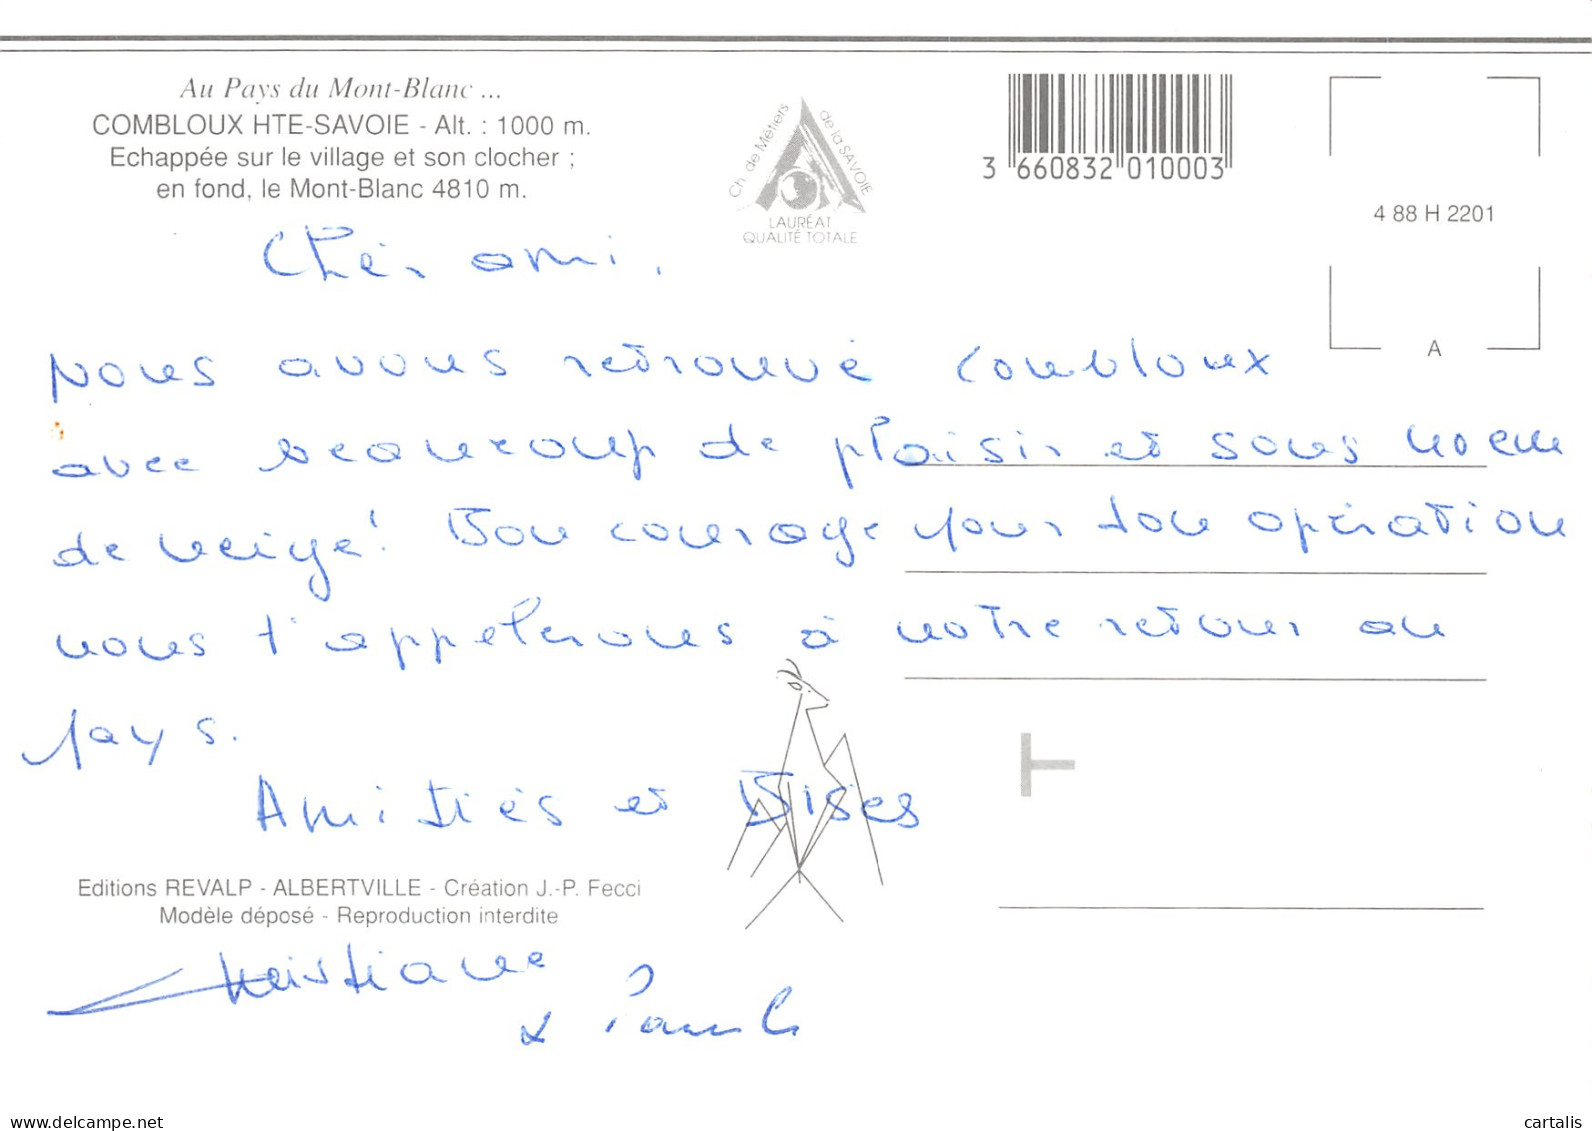 Au Pays du Mont-Blanc ...
COMBLOUX HTE-SAVOIE - Alt. : 1000 m.
Echappée sur le village et son clocher ;
en fond, le Mont-Blanc 4810 m.
Ch. de Métiers de la SAVOIE
LAURÉAT
QUALITÉ TOTALE
3 660832 010003
4 88 H 2201
A
Cher ami,
Nous avons retrouvé Combloux
avec beaucoup de plaisir et sous
de neige! Bon courage pour ton opération
nous t'appelerons à notre retour au
pays.
Amitiés et Bises
Editions REVALP - ALBERTVILLE - Création J.-P. Fecci
Modèle déposé - Reproduction interdite
Christiane
&
delcampe.net
cartalis